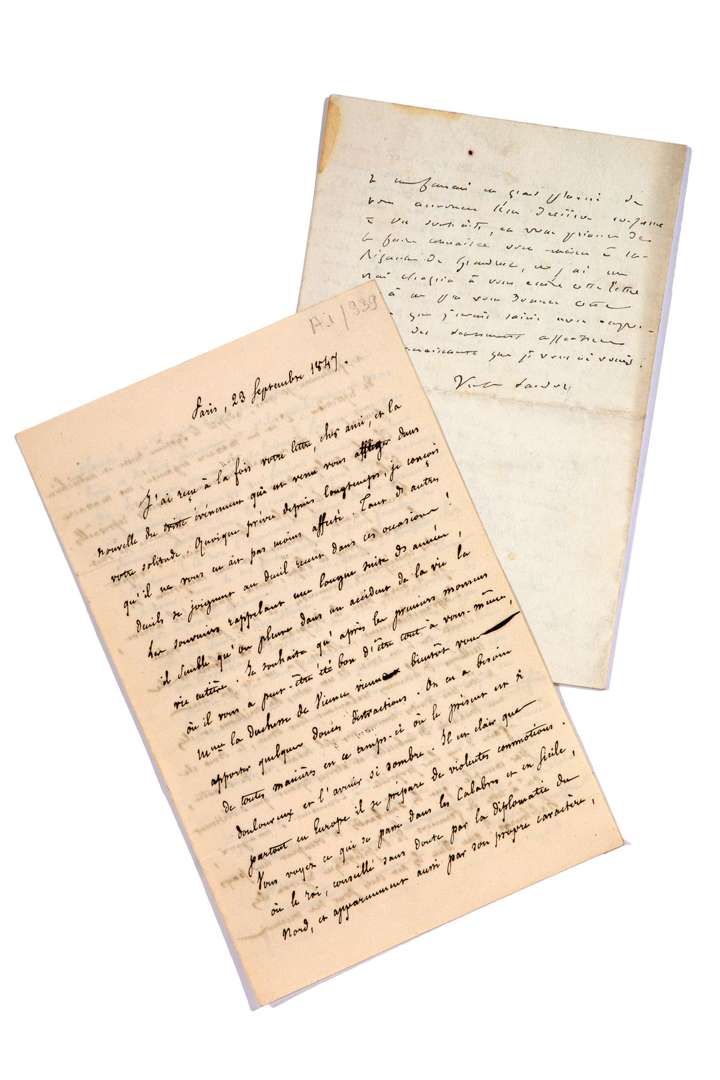 A.I/339
Paris, 23 Septembre 1847.
J'ai reçu à la fois votre lettre, cher ami, et la
nouvelle du triste événement qui est venu vous affliger dans
votre solitude. Quoique prévu depuis longtemps, je conçois
qu'il ne vous en ait pas moins affecté. Tant d'autres
deuils se joignent au deuil récent dans ces occasions !
Les souvenirs rappelant une longue suite des années,
il semble qu'on pleure dans un accident de la vie la
vie entière. Je souhaite qu'après les premiers moments
où il vous a peut-être été bon d'être tout à vous-même,
Mme la duchesse de Vicence vienne bientôt vous
apporter quelques douces distractions. On en a besoin
de toutes manières en ce temps-ci où le présent est si
douloureux et l'avenir si sombre. Il est clair que
partout en Europe il se prépare de violentes commotions.
Vous voyez ce qui se passe dans les Calabres et en Sicile,
où le roi, conseillé sans doute par la diplomatie du
Nord, et apparemment aussi par son propre caractère,
grand plaisir de
vous annoncer
à vos souhaits, en vous priant de
le faire connaître vous-même à
et j'ai un
vrai chagrin à vous écrire cette lettre
à vous donner cette
que j'aurais saisie avec
des sentiments affectueux
que je vous ai voués.